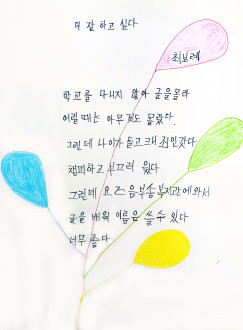 더 잘 하고 싶다
최보례
학교를 다니지 않아 글을 몰라
어릴 때는 아무것도 몰랐다.
그런데 나이가 들고 보니 죄인 같다
챙피하고 부끄러 웠다
그런데 요즈음 복지관에 와서
글을 배워 이름을 쓸 수 있다
너무 좋다